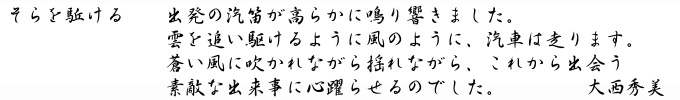 そらを駈ける 出発の汽笛が高らかに鳴り響きました。
雲を追い駆けるように風のように、汽車は走ります。
蒼い風に吹かれながら揺れながら、これから出会う
素敵な出来事に心躍らせるのでした。 大西秀美